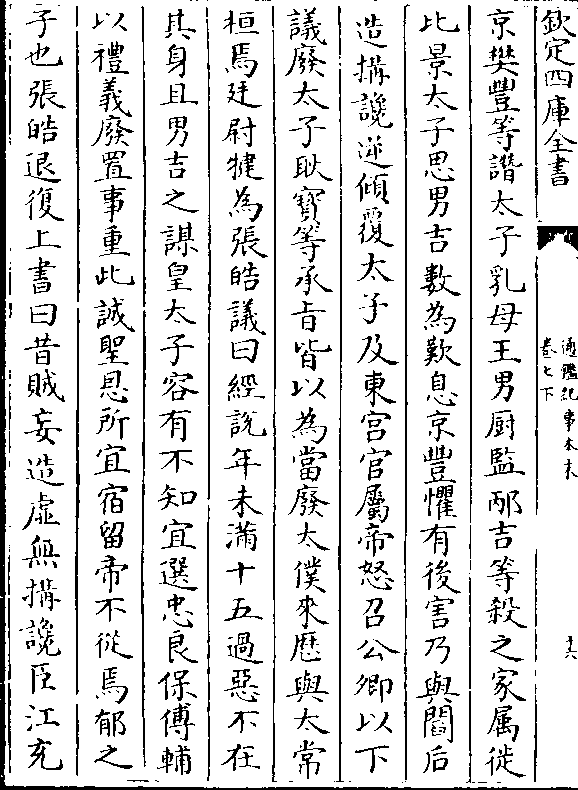 欽定四庫全書
通鑑紀事本末
卷七下
十六
京樊豐等譖太子乳母王男厨監邴吉等殺之家属徙
比景太子思男吉數為歎息京豐懼有後害乃與閻后
造搆讒逆傾覆太子及東宫官屬帝怒召公卿以下
議廢太子耿寳等承旨皆以為當廢太僕來歴與太常
桓焉廷尉犍為張皓議曰經說年未滿十五過惡不在
其身且男吉之謀皇太子容有不知宜選忠良保傅輔
以禮義廢置事重此誠聖恩所宜宿留帝不從焉郁之
子也張皓退復上書曰昔賊妄造虛無搆讒臣江充